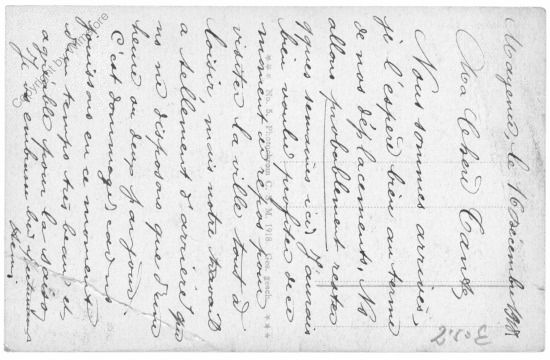 Mayence le 16 Décembre 1918
Ma Chère Tante
Nous sommes arrivés,
je l'espère bien au terme
de nos déplacements. Ns
allons probablement rester
qques semaines ici, J'aurais
bien voulu profiter de ce
moment de repos pour
visiter la ville tout à
loisir mais notre travail
a tellement d'arriéré que
ns ne disposons que d'une
heure ou deux par jour.
C'est dommage car ns
jouissons en ce moment
d'un temps très beau et
agréable pour la saison
Je
Henri
*** No. 5, Phototirage C. S. M. 1918
302.2
Copyright by